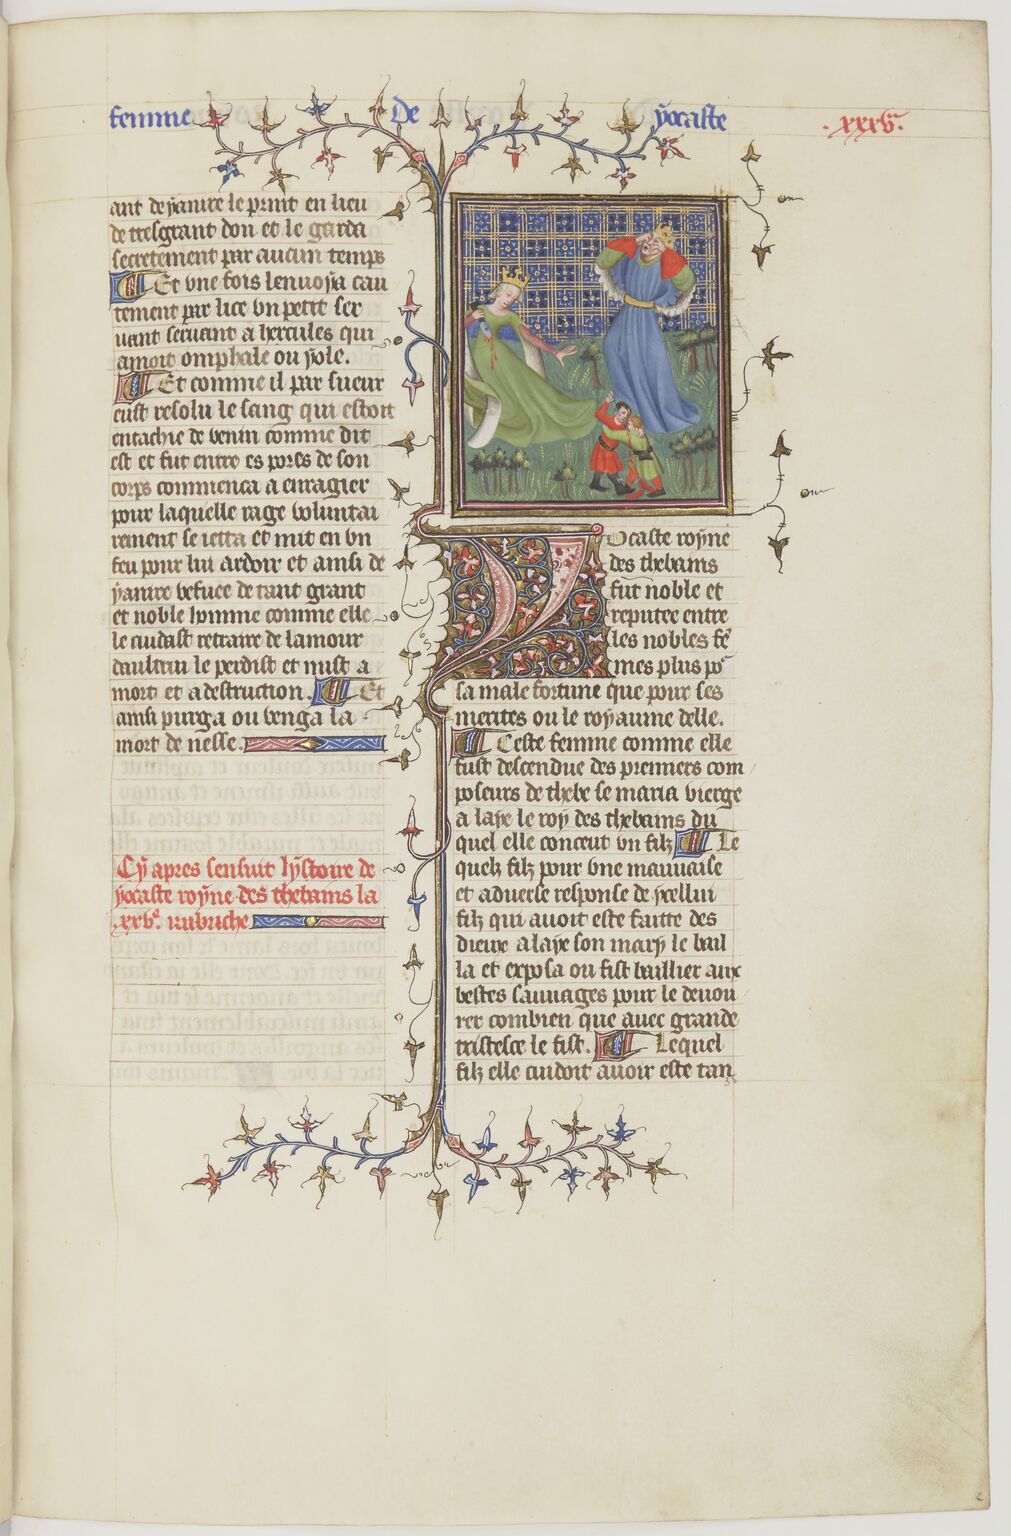 femme De yocaste .xxxv.
ant deyanire le print en lieu
de tresgrant don et le garda
secretement par aucun temps
Et vne fois lenuoya cau
tement par lice vn petit ser
uant seruant a hercules qui
amoit omphale ou yole.
Et comme il par sueur
eust resolu le sang qui estoit
entachie de venin comme dit
est et fut entre es pores de son
corps commenca a enragier
pour laquelle rage voluntai
rement se ietta et mit en vn
feu pour lui ardoir et ainsi de
yanire vefuee de tant grant
et noble homme comme elle
le cuidast retraire de lamour
daultrui le perdist et mist a
mort et a destruction. Et
ainsi purga ou venga la
mort de nesse.
Cy apres sensuit lystoire de
yocaste royne des thebains la
.xxve. rubriche
Yocaste royne
des thebains
fut noble et
reputee entre
les nobles fē
mes plus por
sa male fortune que pour ses
merites ou le royaume delle.
Ceste femme comme elle
fust descendue des premiers com
poseurs de thebe se maria vierge
a laye le roy des thebains du
quel elle conceut vn filz Le
quelz filz pour vne mauuaise
et aduerse response de ycellui
filz qui auoit este faitte des
dieux a laye son mary le bail
la et exposa ou fist baillier aux
bestes sauuages pour le deuou
rer combien que auec grande
tristesce le fist. Lequel
filz elle cuidoit auoir este tan